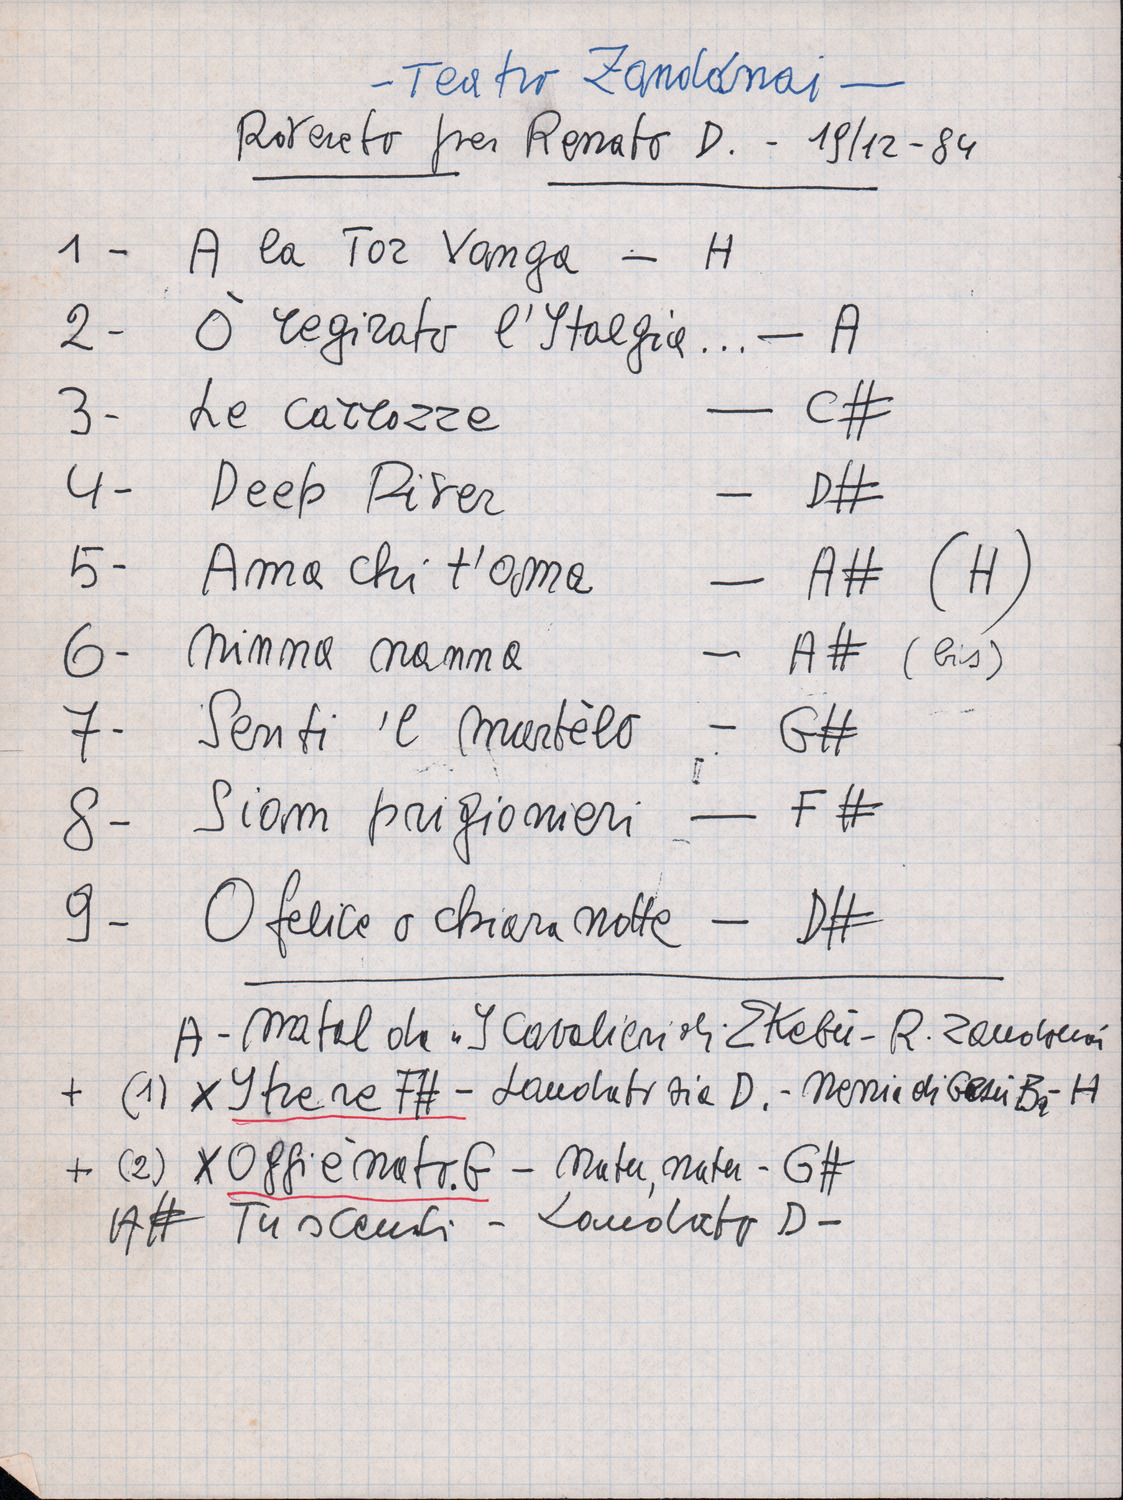 - Teatro Zandonai —
Rovereto per Renato D. - 19/12-84
1 - A la Tor Vanga — H
2 - Ò regirato l'Italgia... — A
3 - Le carrozze — C#
4 - Deep River — D#
5 - Ama chi t'ama — A# (H)
6 - Ninna nanna — A# (bis)
7 - Senti 'l martèlo - G#
8 - Siam prigionieri — F#
9 - O felice o chiara notte — D#
A - Natal da "I Cavalieri di Ekebù - R. Zandonai
+ (1) X I tre re F# - Laudato sia D. - Nenia di Gesù Ba - H
+ (2) X Oggi è nato. G - Natu, natu - G#
A# Tu scendi - Laudato D -